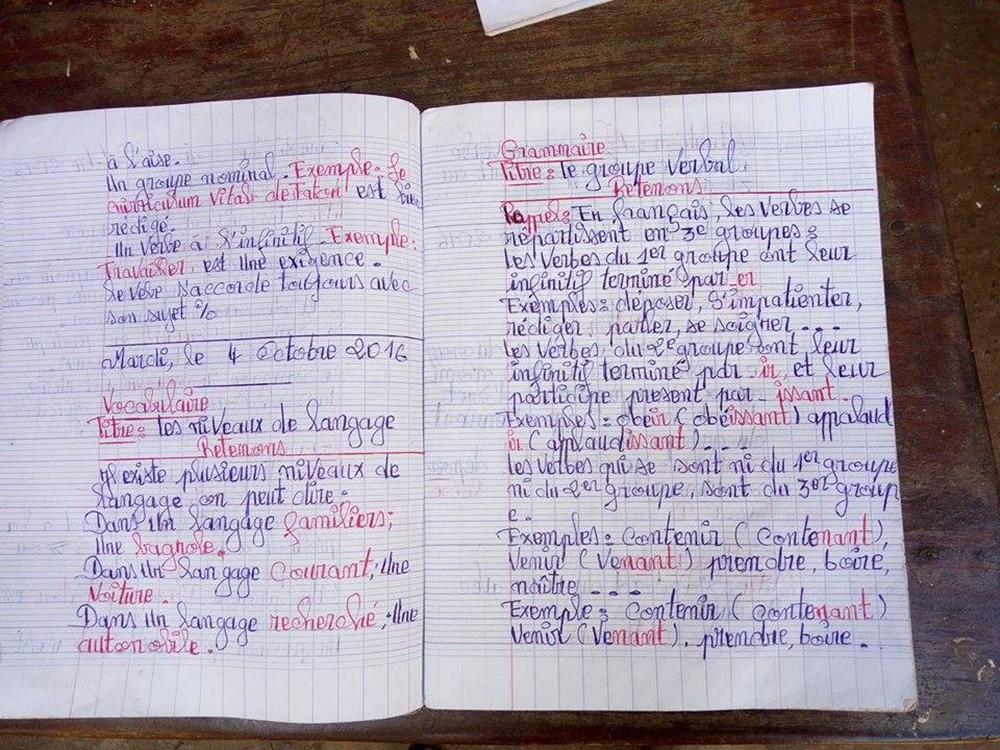 à l'aise.
Un groupe nominal. Exemple: Le
curriculum Vitae de Takou est bien
rédigé.
Un verbe à l'infinitif. Exemple:
Travailler est une exigence.
Le verbe s'accorde toujours avec
son sujet %
Mardi, le 4 Octobre 2016
Vocabulaire
Titre: Les niveaux de langage
Retenons
Il existe plusieurs niveaux de
langage on peut dire.
Dans un langage familiers;
Une bagnole.
Dans un langage Courant, Une
Voiture.
Dans un langage recherché, Une
automobile.
Grammaire
Titre: le groupe Verbal.
Retenons
Rappel: En français, les verbes se
répartissent en 3e groupes:
Les Verbes du 1er groupe ont leur
infinitif terminé par er
Exemples: déposer, s'impatienter,
rédiger, parler, se soigner...
Les Verbes du 2e groupe ont leur
infinitif terminé par ir, et leur
participe present par - issant.
Exemples: obéir (obéissant) applaud
ir (applaudissant)....
Les verbes qui se sont ni du 1er groupe
ni du 2er groupe, sont du 3er group
e.
Exemples: Contenir (Contenant),
Venir (Venant) prendre, boire,
naître....
Exemple: Contenir (contenant)
Venir (venant), prendre, boire.